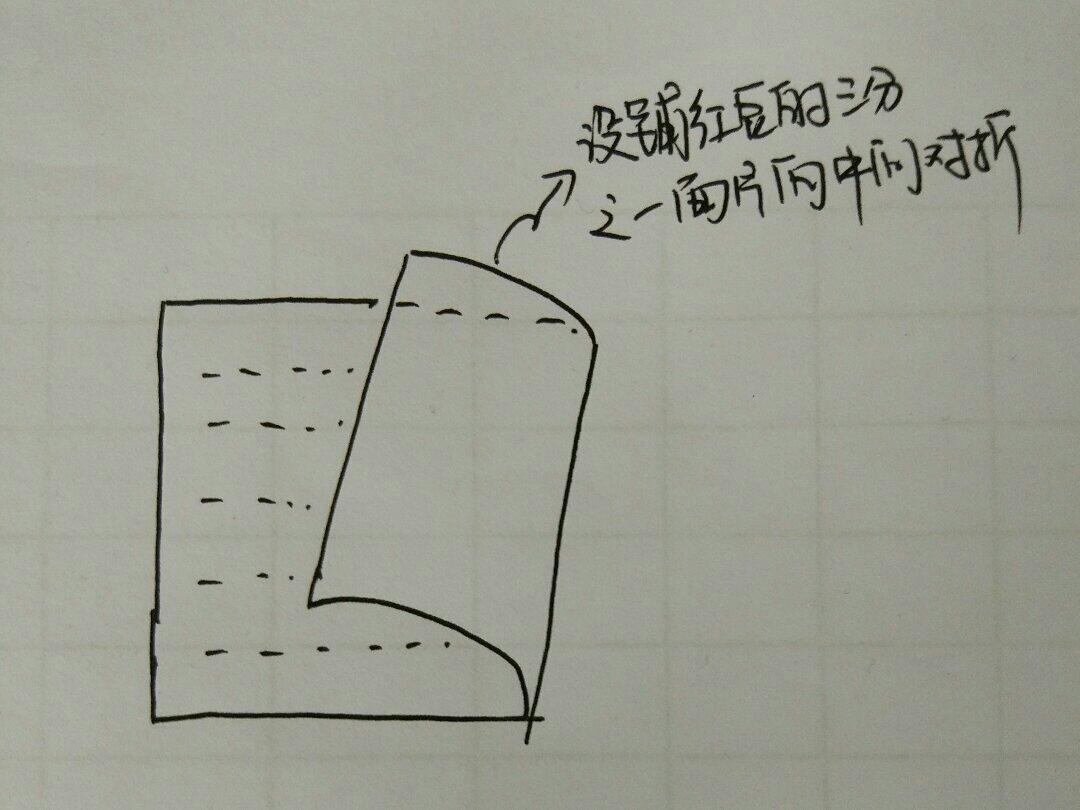 没铺红豆的三分
之一面片向中间对折